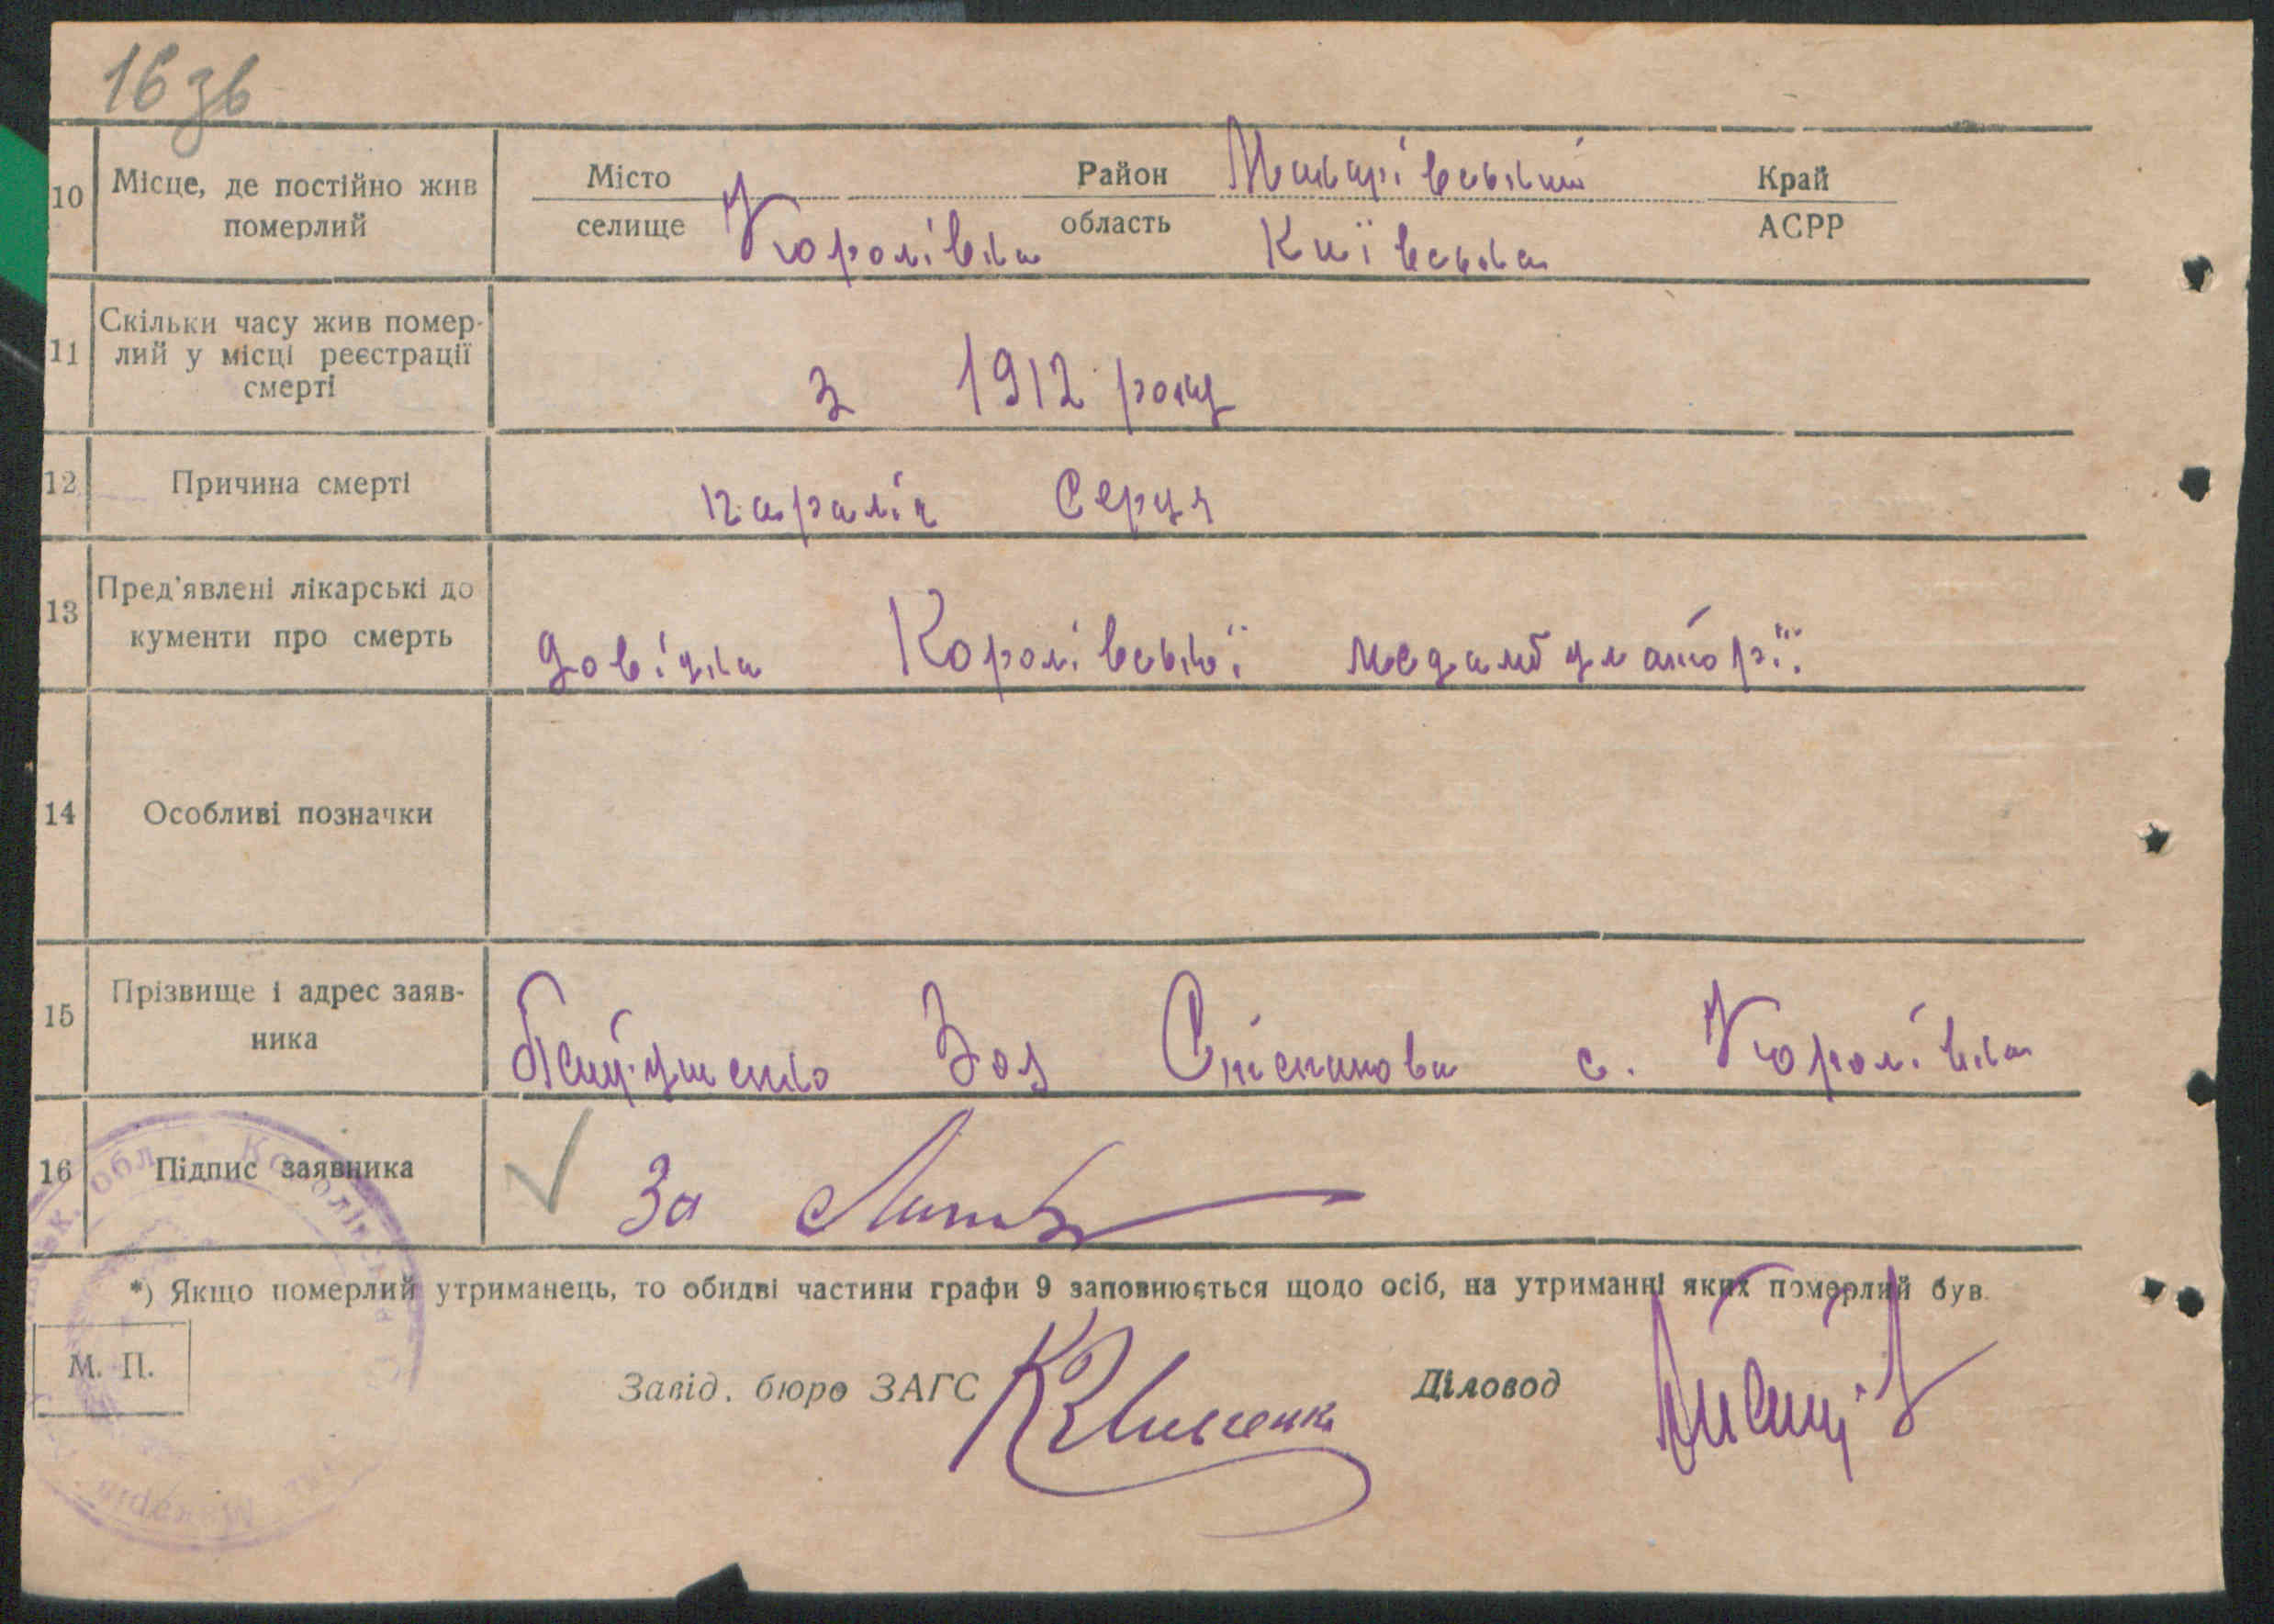 16 зв
10 Місце, де постійно жив померлий
Місто Район Макарівський Край
селище Королівка область Київська АСРР
11 Скільки часу жив помер-
лий у місці реєстрації
смерті
з 1912 року
12 Причина смерті параліч Серця
13 Пред'явлені лікарські до
кументи про смерть
довідка Королівської медамбулаторії
14 Особливі позначки
15 Прізвище і адрес заяв-
ника
Зоя Стіпанова с. Королівка
16 Підпис заявника За
*) Якщо померлий утриманець, то обидві частини графи 9 заповнюється щодо осіб, на утриманні яких померлий був.
М. П.
Завід. бюро ЗАГС Діловод